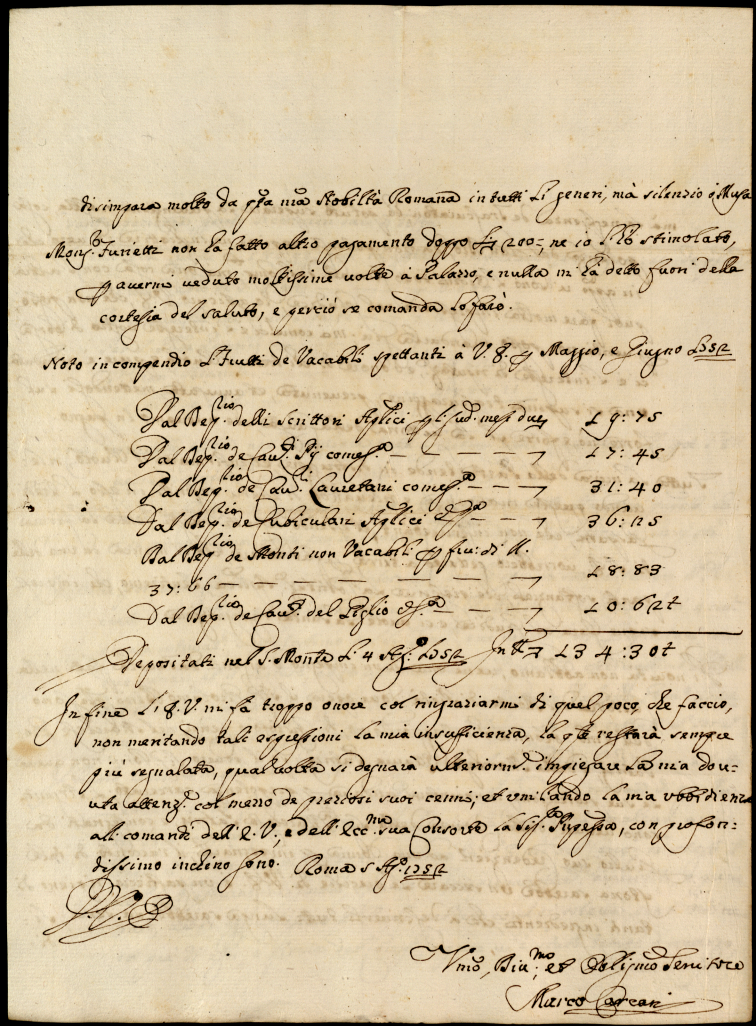 disimpara molto da q̃sta n̄ra Nobiltà Romana in tutti Li generi, mà silenzio ò Musa
Mons.r Furietti non hà fatto altro pagamento doppo 200, ne io l'hò stimolato,
p avermi veduto moltissime volte à Palazzo, e nulla m'hà detto fuori della
cortesia del saluto, e perciò se comanda Lo farò.
Noto in compendio L'Frutti de Vacabili spettanti à V. E. p Maggio, e Giugno 1752
Dal Coll.io delli Scrittori Ap̃lici p li sud. mesi due 19:75
Dal Coll.io de Cav.i Pij come s.a — — — 17:45
Dal Coll.io de Cav.i Lauretani come s.a — — 31:40
Dal Coll.io de Cubiculari Ap̃lici s.a — — 36:25
Dal de Monti non Vacabili p frutti di
37:66 — — — — — — — 18:83
Dal Coll.io de Cav.i del Giglio s.a — — 10:62
Depositati nel S. Monte Li 4 Ag.o 1752 In tt.o 134:30
In fine L'E. V. mi fà troppo onore col ringraziarmi di quel poco che faccio,
non meritando tali espressioni la mia insufficienza, la q̃le resterà sempre
più segnalata, qual volta si degnarà ulteriorm.e impiegare La mia dov=
uta attenz.e col mezzo de preziosi suoi cenni; et umiliando la mia ubbidienza
alli comandi dell'E. V., e dell'Ecc.ma sua Consorte la Sig.ra P̃npessa, con profon=
dissimo inchino sono. Roma 5 Ag.o 1752
Um̃o, Div.mo, et Oblig̃mo Servitore
Marco Carcani